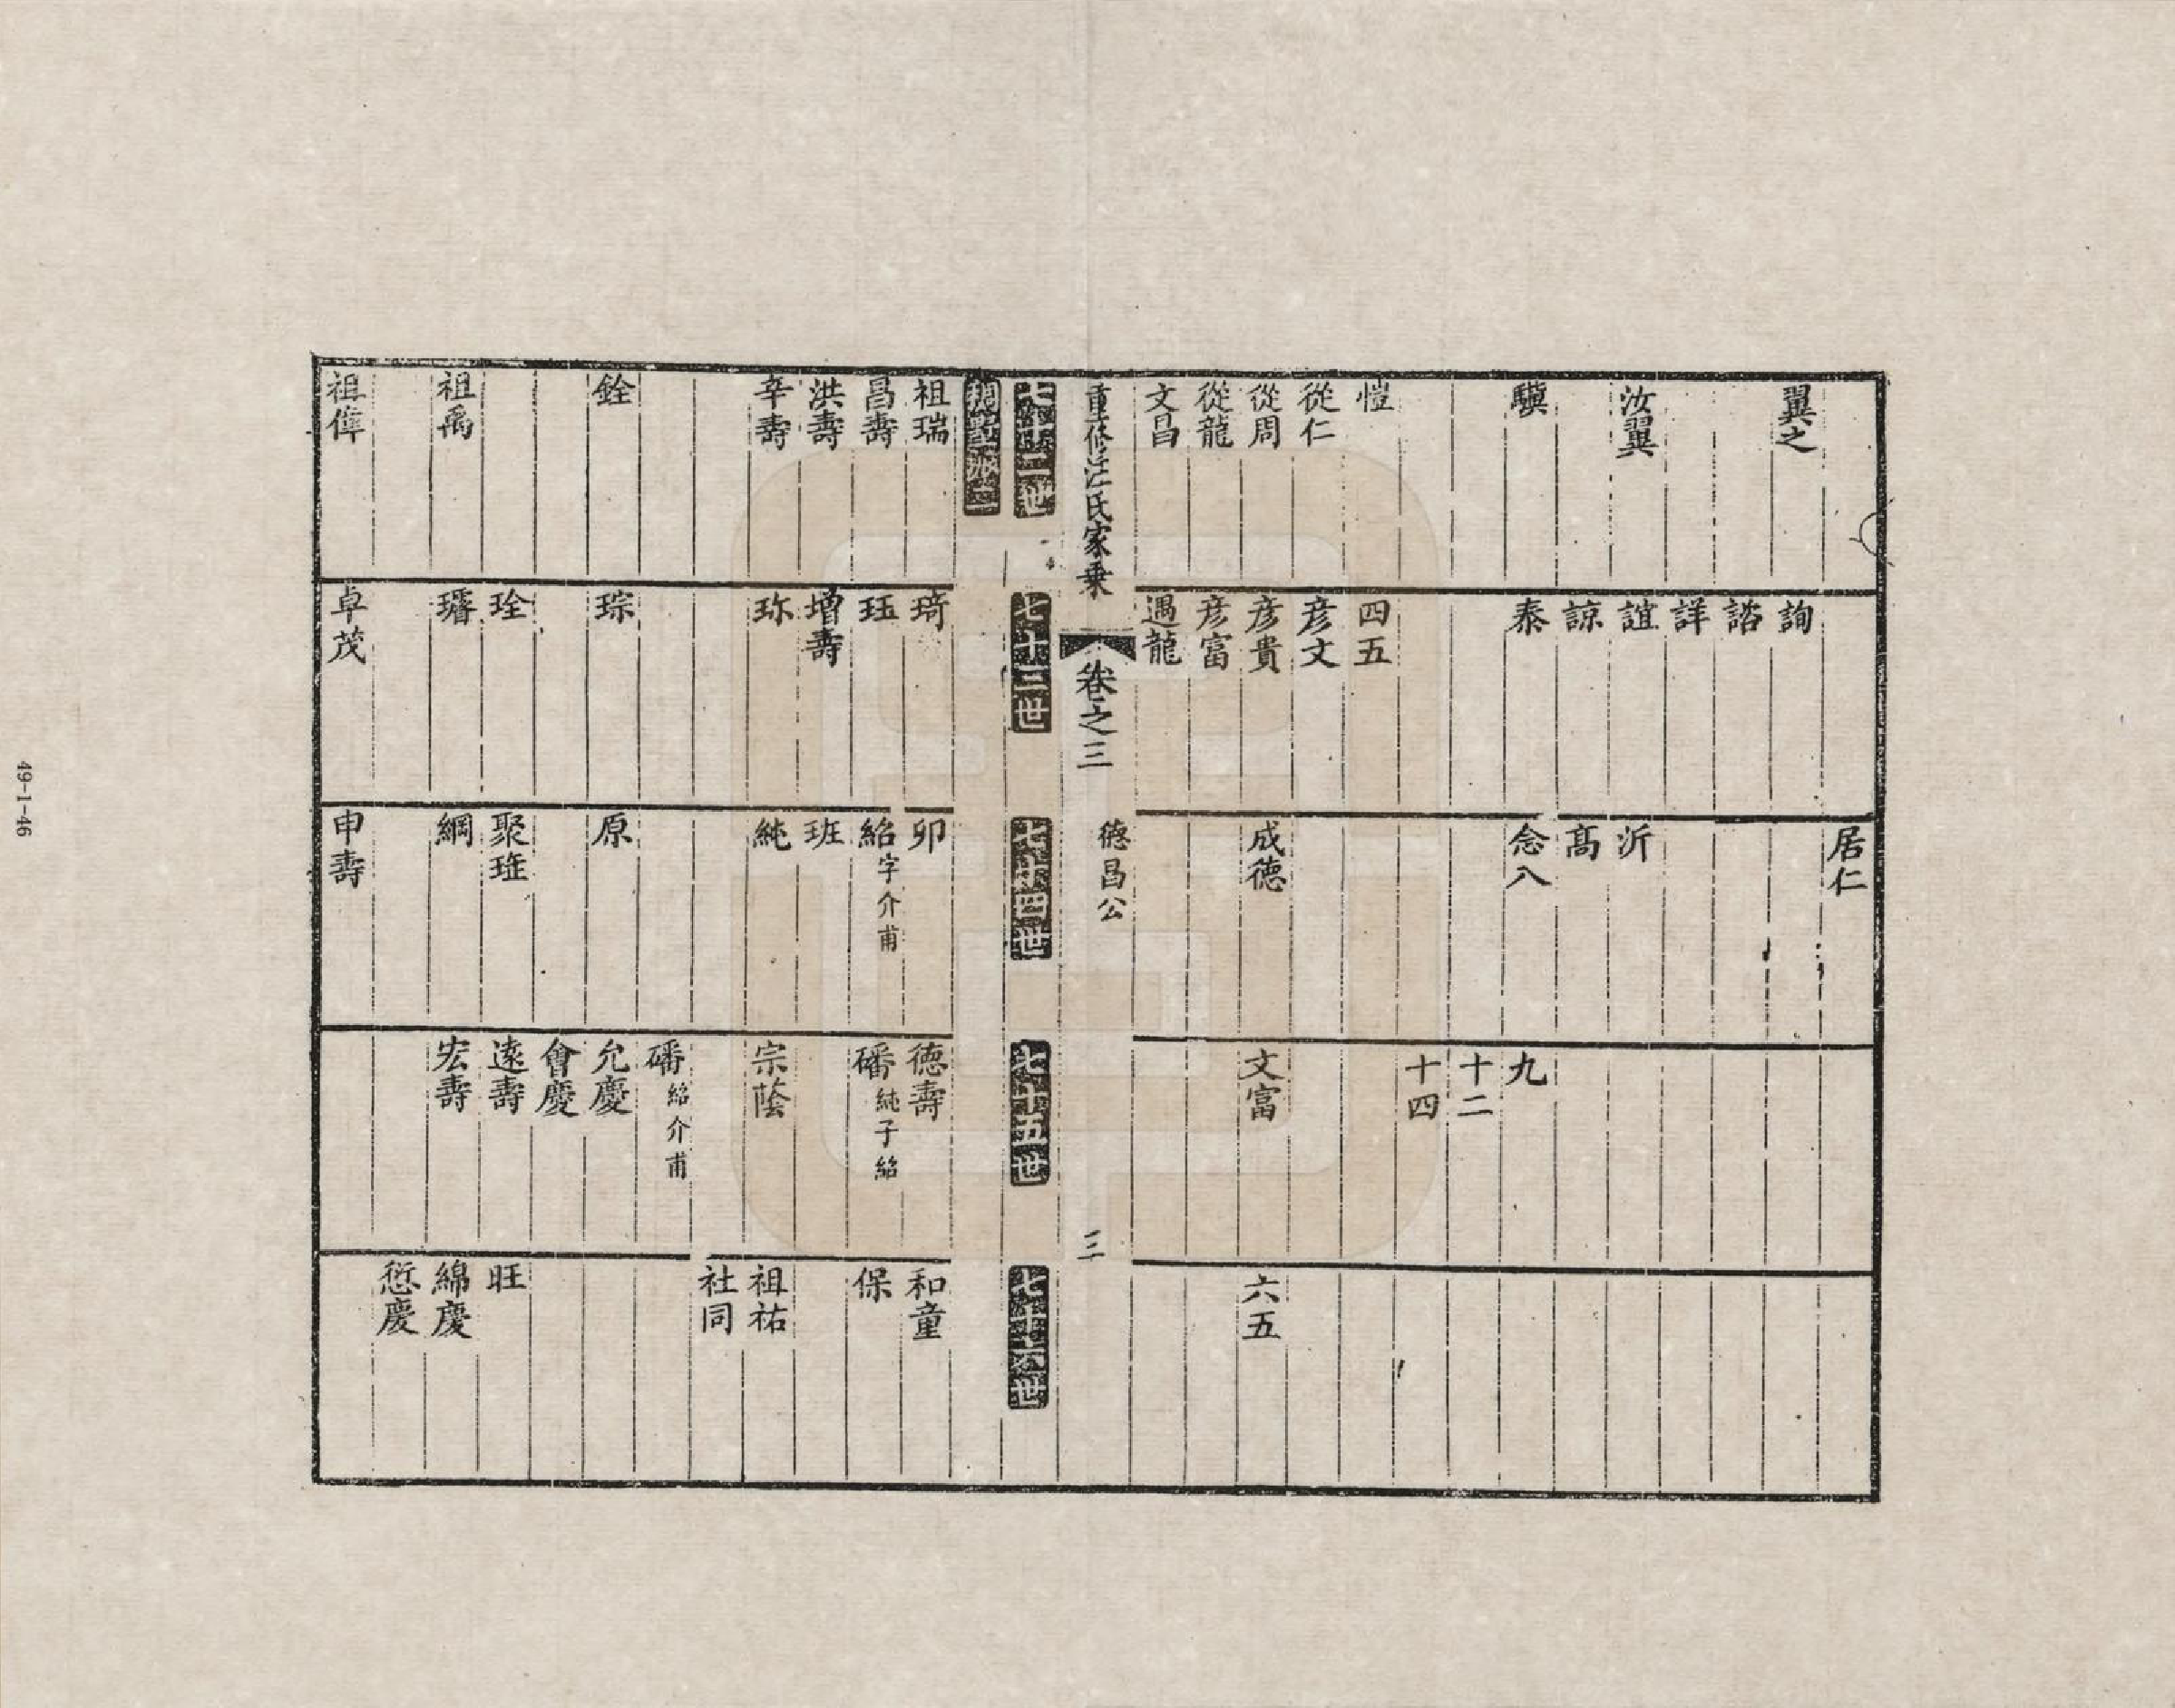 翼之
汝翼
驥
愷
從仁
從周
從龍
文昌
詢
諮
詳
誼
諒
泰
四五
彦文
彦貴
彦富
遇龍
居仁
沂
高
念八
成德
九
十二
十四
文富
六五
重修汪氏家乗
卷之三
德昌公
三
七十二世
七十三世
七十四世
七十五世
七十六世
祖瑞
昌壽
洪壽
辛壽
銓
祖禹
祖偉
琦
珏
增壽
珎
琮
琻
璿
卓茂
卯
紹字介甫
班
純
原
聚
綱
申壽
德壽
磻純子紹
宗蔭
磻紹介甫
允慶
會慶
遠壽
宏壽
和童
保
祖祐
社同
旺
綿慶
愆慶
49-1-46